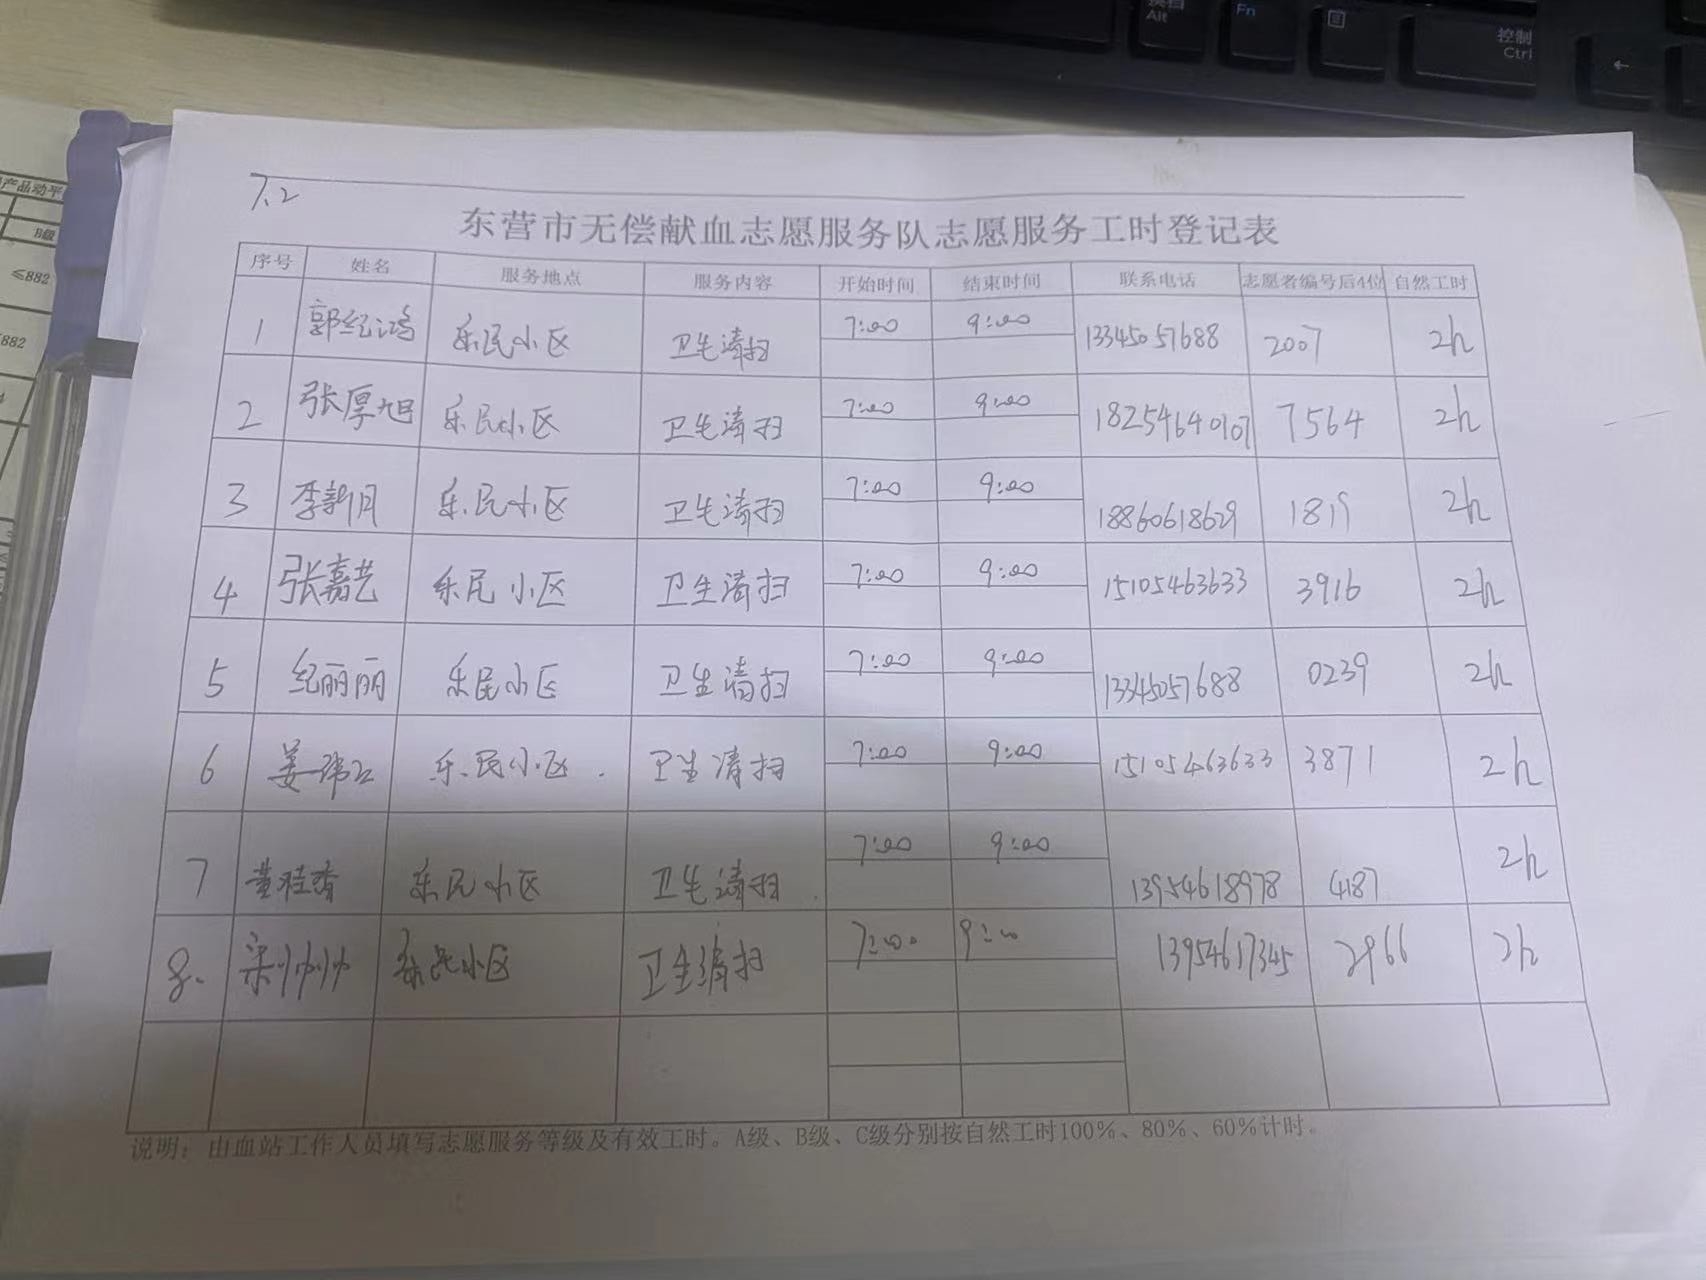 换档
Alt
Fn
控制
Ctrl
←
产品动平
B级
≤882
882
7.2
东营市无偿献血志愿服务队志愿服务工时登记表
序号 姓名 服务地点 服务内容 开始时间 结束时间 联系电话 志愿者编号后4位 自然工时
1 郭纪鸿 乐民小区 卫生清扫 7:00 9:00 13345057688 2007 2h
2 张厚旭 乐民小区 卫生清扫 7:00 9:00 18254640107 7564 2h
3 李新月 乐民小区 卫生清扫 7:00 9:00 18860618629 1819 2h
4 张嘉艺 乐民小区 卫生清扫 7:00 9:00 15105463633 3916 2h
5 纪丽丽 乐民小区 卫生清扫 7:00 9:00 13345057688 0239 2h
6 姜 乐民小区 卫生清扫 7:00 9:00 15105463633 3871 2h
7 董桂香 乐民小区 卫生清扫 7:00 9:00 13954618978 4187 2h
8. 梁帅帅 乐民小区 卫生清扫 7:00 9:00 13954617345 2966 2h
说明：由血站工作人员填写志愿服务等级及有效工时。A级、B级、C级分别按自然工时100%、80%、60%计时。